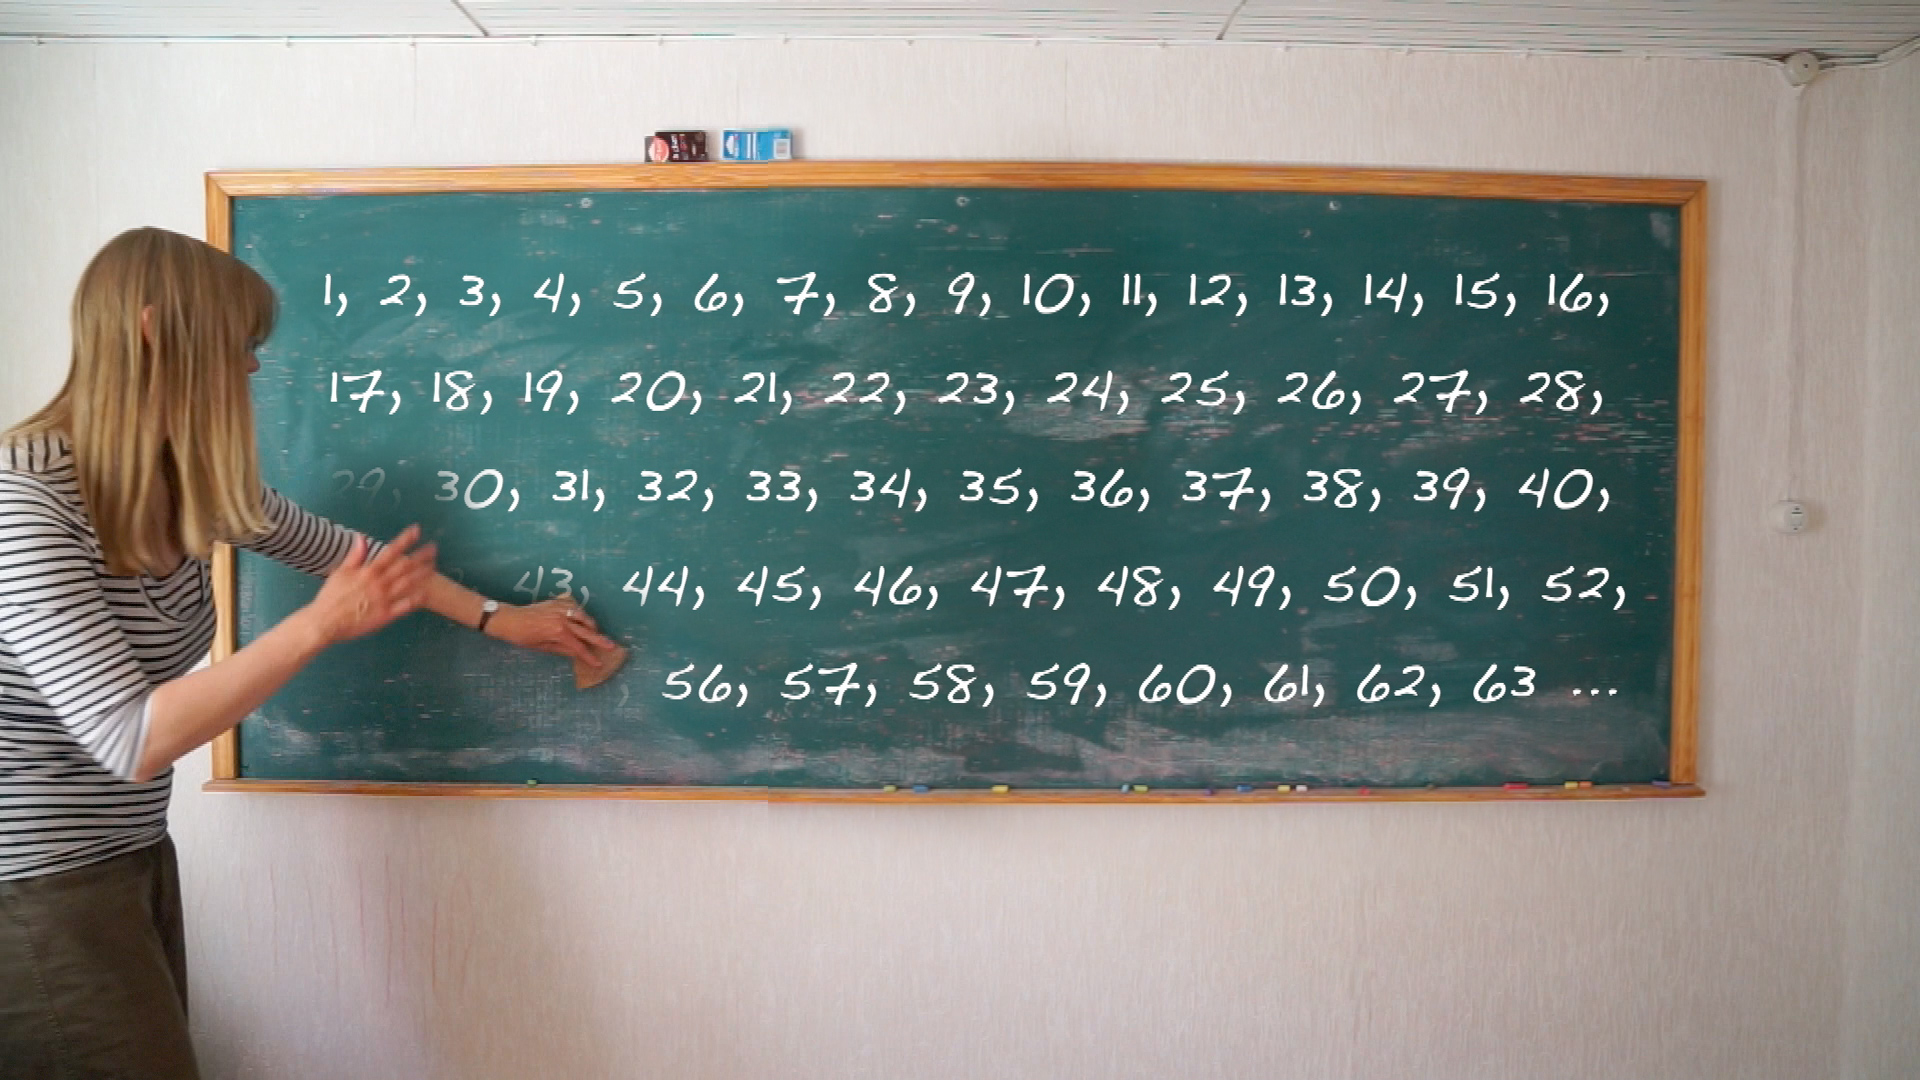 1, 2, 3, 4, 5, 6, 7, 8, 9, 10, 11, 12, 13, 14, 15, 16,
17, 18, 19, 20, 21, 22, 23, 24, 25, 26, 27, 28,
29, 30, 31, 32, 33, 34, 35, 36, 37, 38, 39, 40,
43, 44, 45, 46, 47, 48, 49, 50, 51, 52,
56, 57, 58, 59, 60, 61, 62, 63 ...